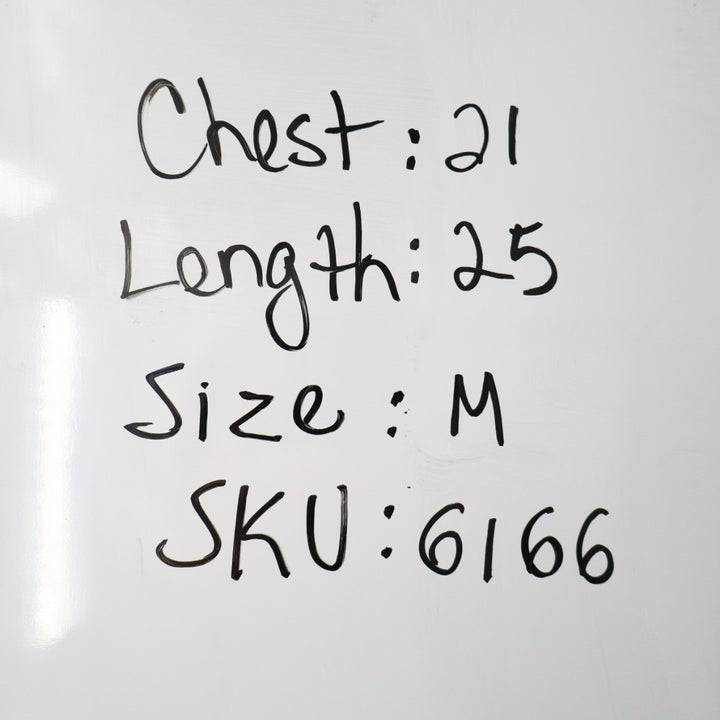 Chest: 21
Length: 25
Size: M
SKU: 6166